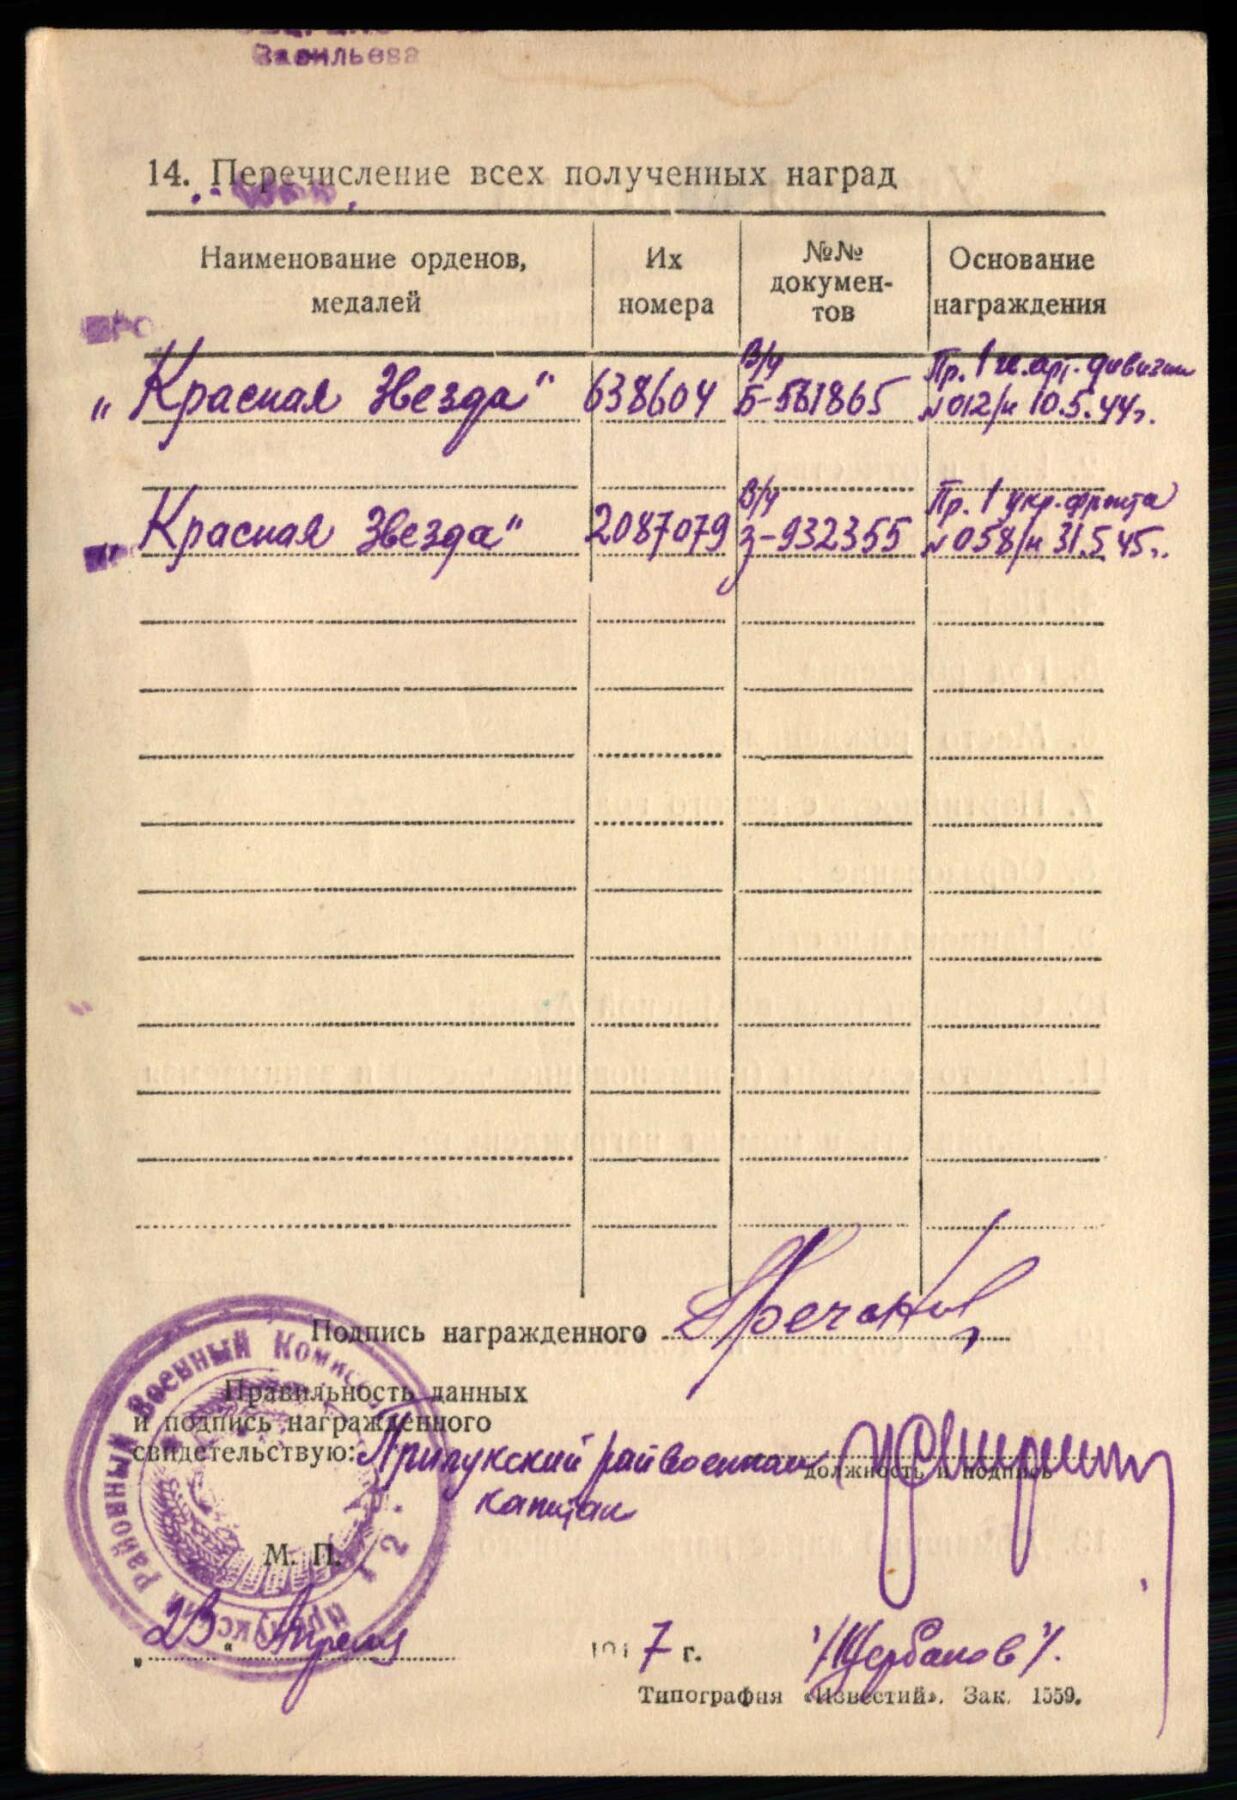 Васильева
14. Перечисление всех полученных наград
Наименование орденов, медалей
Их номера
№№ докумен-
тов
Основание награждения
„Красная Звезда" 638604 В/ч Б-561865 Пр. 1 гв. арт. дивизии №012/н 10.5.44г.
„Красная Звезда" 2087079 В/ч З-932355 Пр. 1 укр. фронта №058/н 31.5 45г.
Подпись награжденного
Правильность данных
и подпись награжденного
свидетельствую: Прилукский райвоенком
должность и подпись
капитан
Прилукский Районный Военный
М. П.
„23" Апреля 1947 г. /Щербаков/.
Типография «Известий». Зак. 1559.